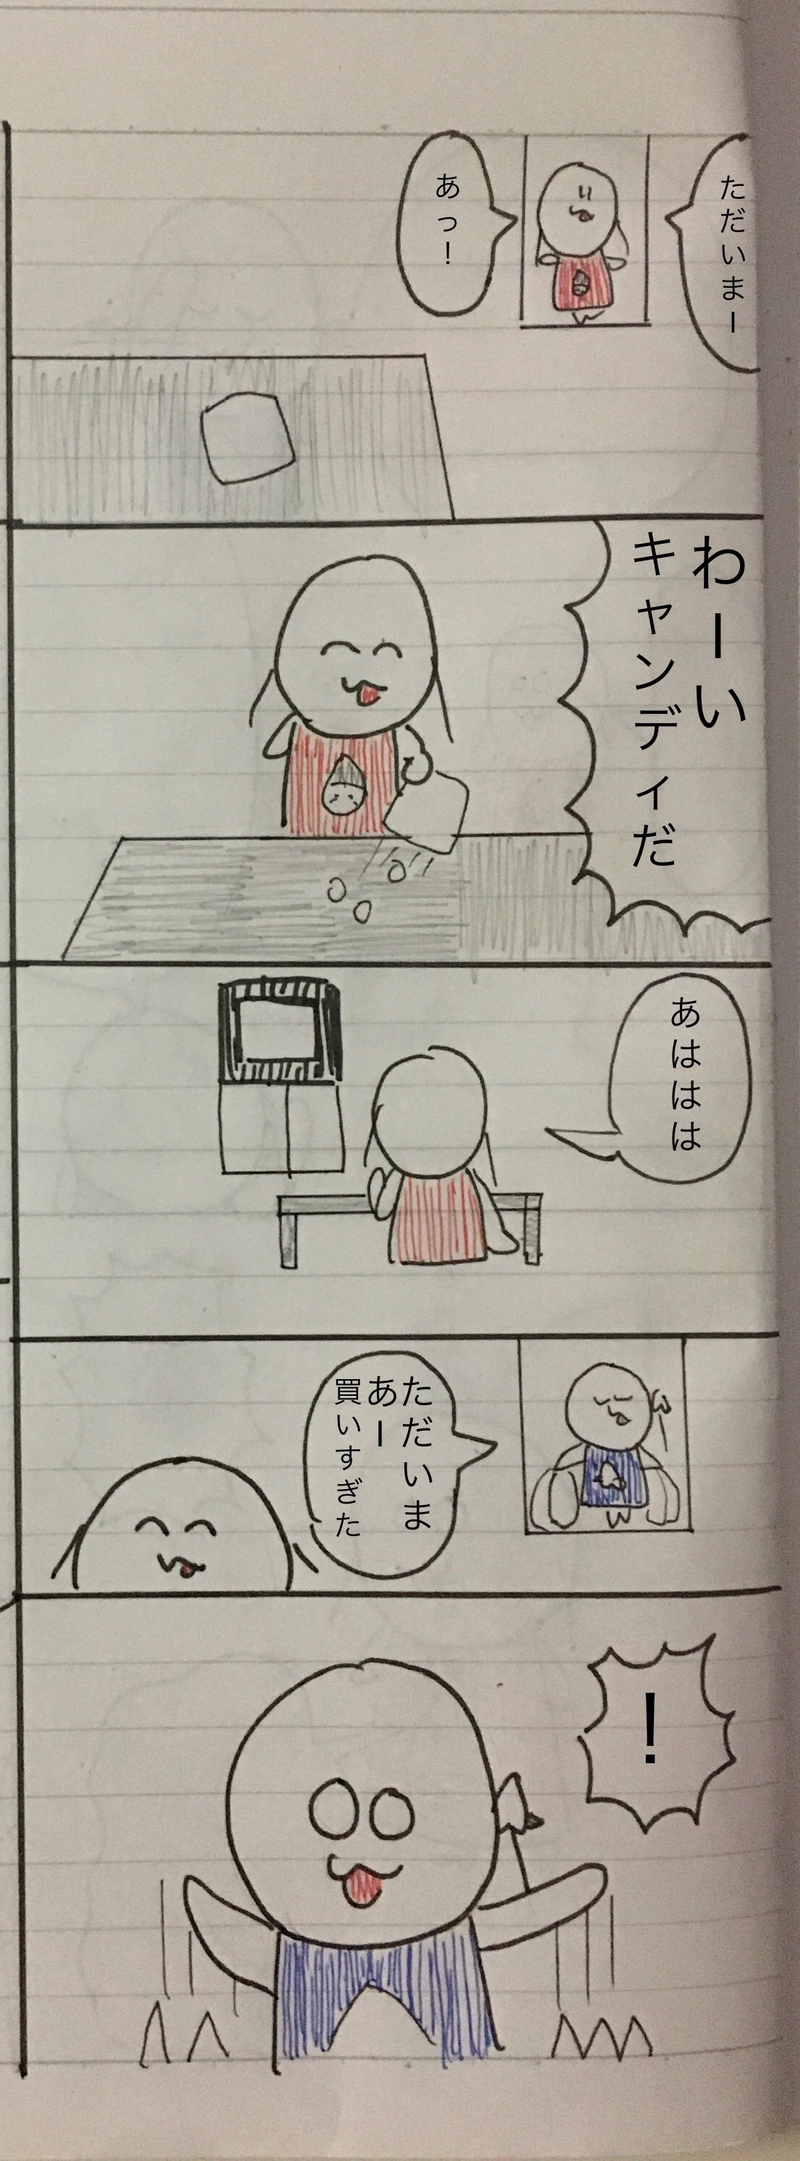 ただいまー
あっ！
わーい
キャンディだ
あははは
ただいま
あー
買いすぎた
！